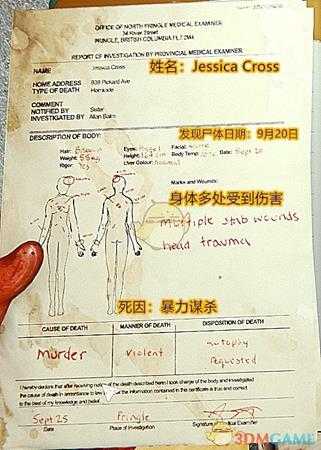 OFFICE OF NORTH PRINGLE MEDICAL EXAMINER
34 River Street
PRINGLE, BRITISH COLUMBIA
REPORT OF INVESTIGATION BY PROVINCIAL MEDICAL EXAMINER
NAME Jessica Cross
姓名：Jessica Cross
HOME ADDRESS 939 Pickard Ave
TYPE OF DEATH Homicide
COMMENT
NOTIFIED BY Sister
INVESTIGATED BY Allan
发现尸体日期：9月20日
DESCRIPTION OF BODY:
Hair: Eyes: Hazel Facial:
Weight: 55kg Height: Body Temp: Date: Sept 20
Rigor: Liver Colour:
Marks and Wounds:
身体多处受到伤害
multiple stab wounds
head trauma
死因：暴力谋杀
CAUSE OF DEATH MANNER OF DEATH DISPOSITION OF DEATH
Murder Violent autophy requested
I hereby declare that after receiving notice of the death described herein I took charge of the body and investigated
the cause of death in accordance to law the information contained in this certificate is true and correct
to the best of my knowledge and belief.
Sept 25 Pringle
Date Place of Investigation Signature of Medical Examiner
3DMGAME